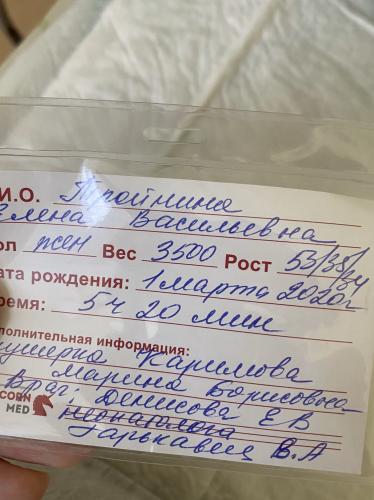 И.О. Тройнина
Елена Васильевна
ол жен Вес 3500 Рост 53/35/34
ата рождения: 1 марта 2020г
ремя: 5ч 20 мин
полнительная информация:
кушерка Каримова
Марина Борисовна
Врач: Денисова ЕВ
CORN
MED
неонатолога
Гарькавец В.А